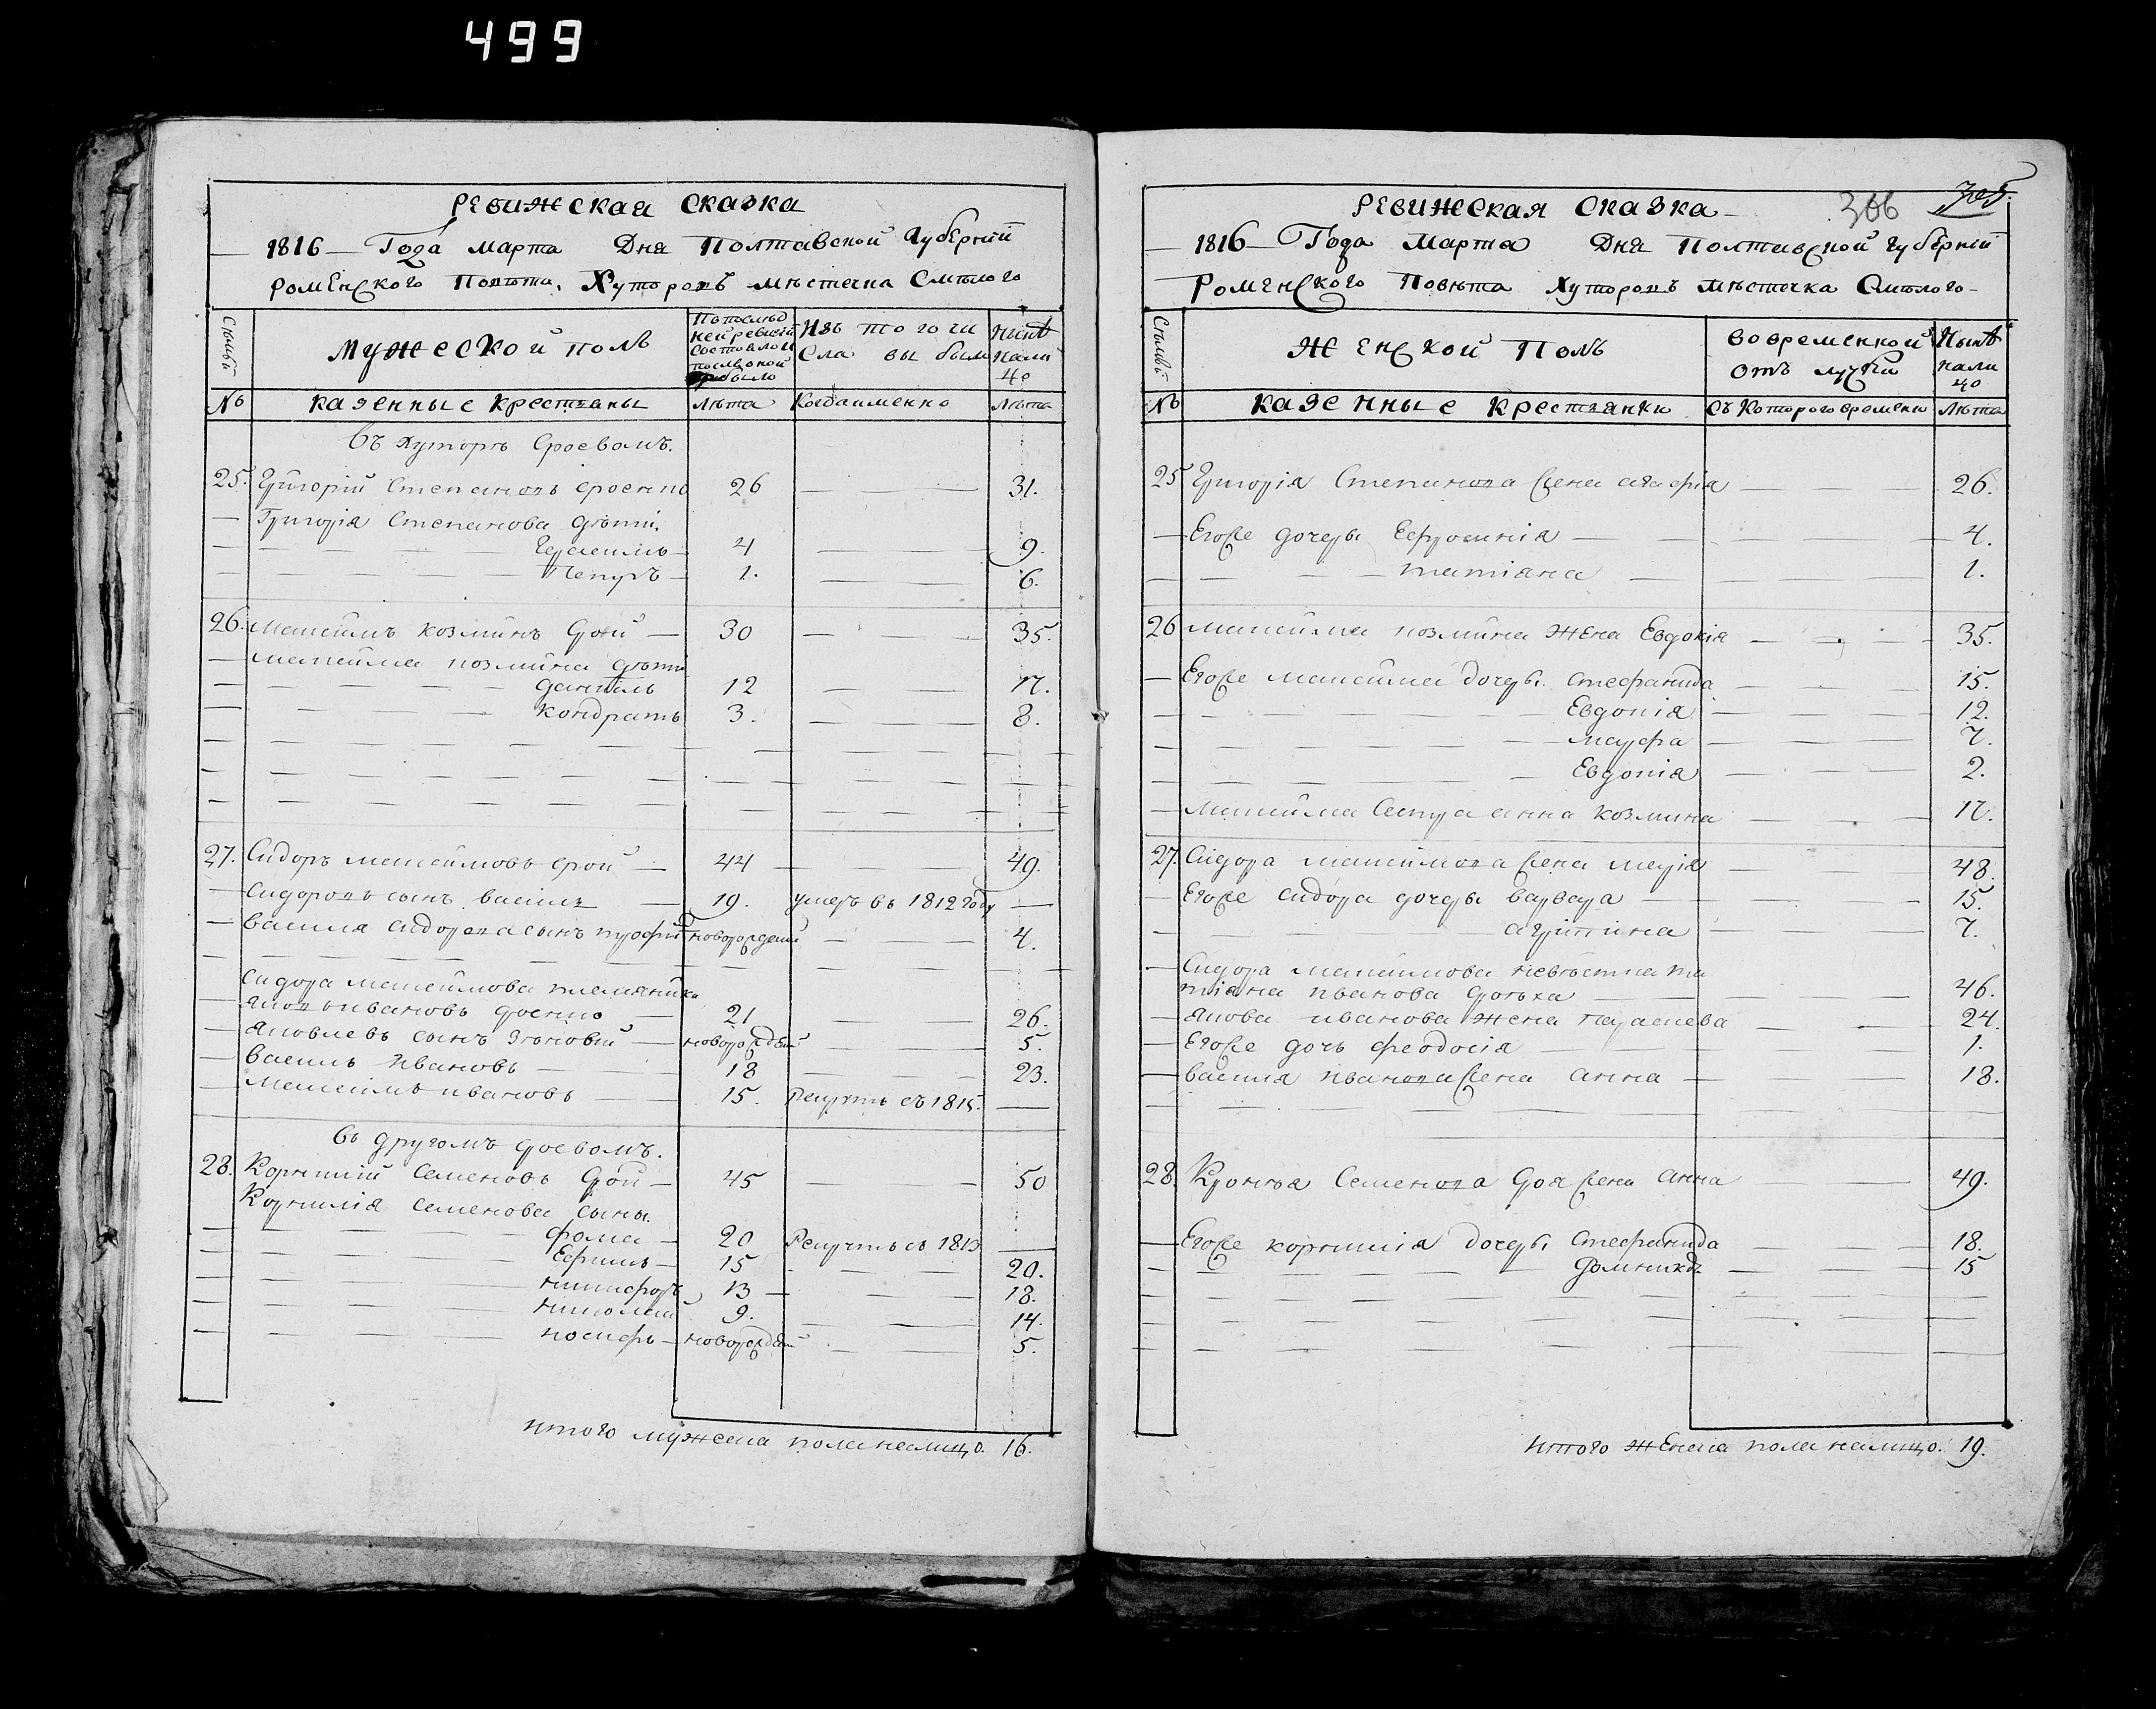 499
Ревижская сказка
1816 Года марта Дня Полтавской Губернии
Роменского Повѣта, Хуторовъ мѣстечка Смѣлого
Мужеской полъ
Изъ того чи
сла выбыло
Нынѣ
нали
цо
№ казенные крестьяны Лѣта Когдаименно Лѣта
Въ хуторѣ Ероевомъ.
25. Григорій Степановъ 26 31.
Григорія Степанова дѣти,
Герасимъ 4 9.
Петръ 1. 6.
26. Максимъ Козминъ 30 35.
Максима Козмина дѣти
Даніилъ 12 17.
Кондратъ 3. 8.
27. Сидоръ Максимовъ 44 49.
Сидоровъ сынъ Василь 19. умеръ въ 1812 году
Василя Сидорова сынъ новорожденый 4.
Сидора Максимова племянники
Яковъ Ивановъ 21 26.
Яковлевъ сынъ новорожденый 5.
Василь Ивановъ 18 23.
Максимъ Ивановъ 15. Рекрутъ съ 1815.
Въ другомъ Ероевомъ.
28. Корнилій Семеновъ 45 50
Корнилія Семенова сыны.
Фома 20 Рекрутъ съ 1813
Ефимъ 15 20.
Никифоръ 13 18.
Николай 9. 14.
Иосифъ новорожденый 5.
итого мужеска пола налицо. 16.
Ревижская сказка 366 305.
1816 Года Марта Дня Полтавской Губерніи
Роменского Повѣта Хуторовъ Мѣстечка Смѣлого
Женской Полъ
Во временной
отлучки
Нынѣ
нали
цо
№ казенные крестьянки Съ которого времени Лѣта
25 Григорія Степанова жена Агафія 26.
Егоже дочеры Ефросинія 4.
Татіяна 1.
26 Максима Козмина жена Евдокія 35.
Егоже Максима дочеры Стефанида 15.
Евдокія 12.
Марфа 7.
Евдокія 2.
Максима сестра Анна Козмина 17.
27. Сидора Максимова жена Марія 48.
Егоже Сидора дочеры Варвара 15.
Агрипина 7.
Сидора Максимова невѣстка Та
тіяна Иванова 46.
Якова Иванова жена Параскева 24.
Егоже дочь Феодосія 1.
Василя Иванова жена Анна 18.
28. Семенова жена Анна 49.
Егоже Корнилія дочеры Стефанида 18.
Домникія 15
итого женска пола налицо. 19.